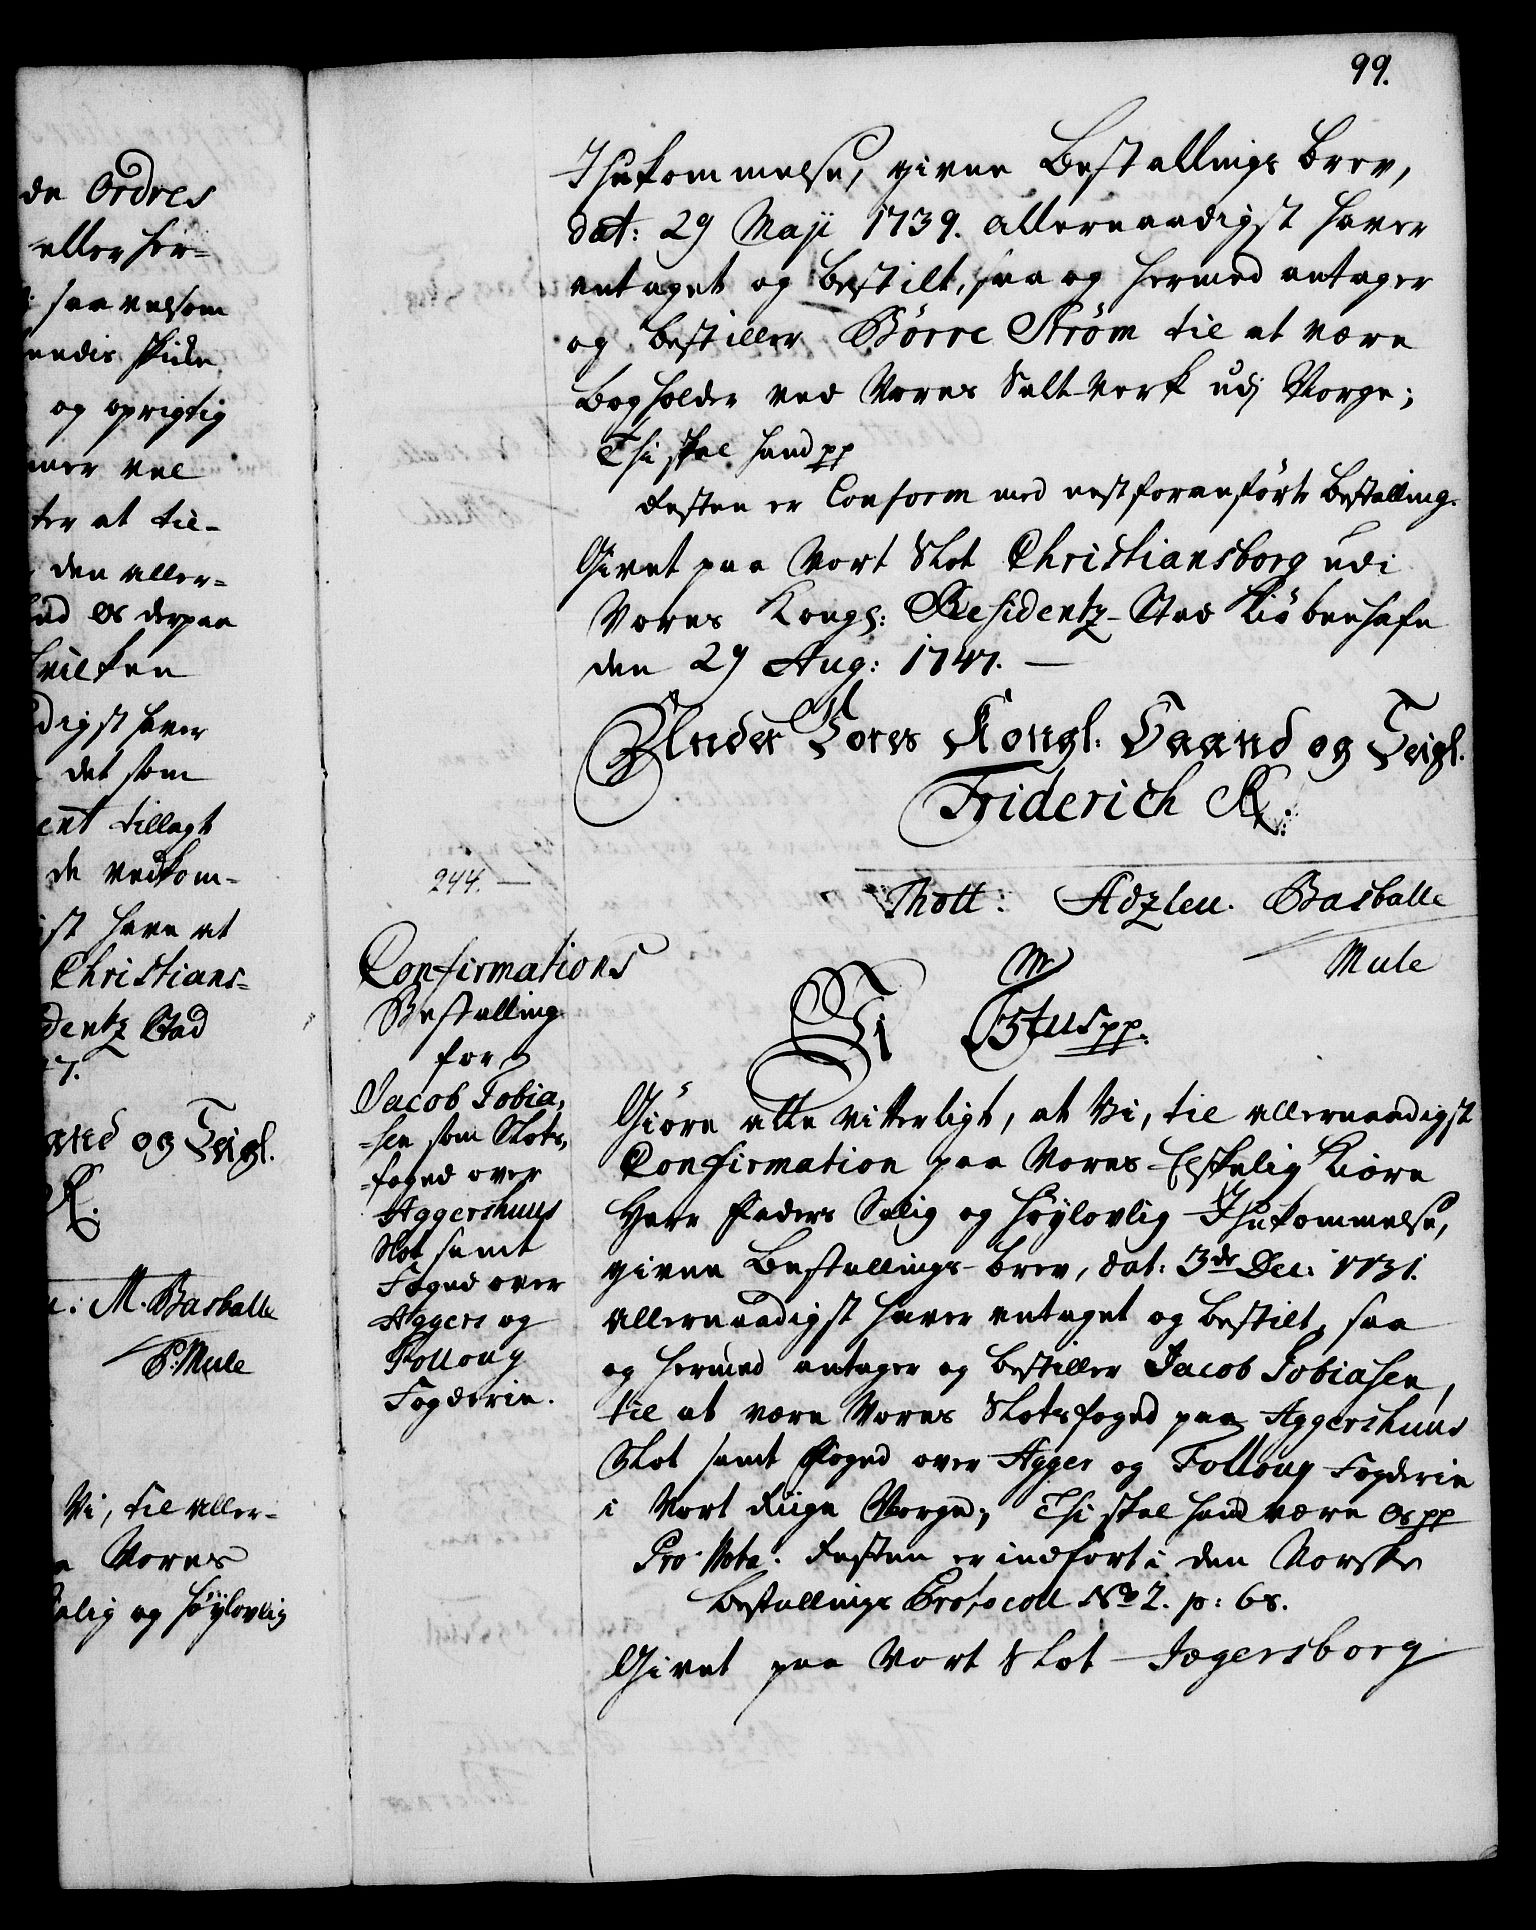 99.
Ihukommelse, givne Bestallings brev,
dat: 29 Maji 1739. allernaadigst haver
antaget og bestilt, saa og hermed antager
og bestiller Börre Strøm til at være
bogholder ved Vores Salt-Verk udj Norge;
Thi skal hand pp
Resten er Conform med nestforanførte bestalling.
Givet paa Vort Slot Christiansborg udi
Vores Kongl: Residentz-Stad Kiöbenhafn
den 29 Aug: 1747. —
Under Vores Kongl. Haand og Seigl.
Friderich R.
Thott: Adzleu. Basballe
Mule
244. —
Confirmations
Bestalling
for
Jacob Tobia-
-sen som Slots-
-foged over
Aggershuus
Slot samt
Foged over
Aggers og
Folloug
Fogderie.
Vi
Giøre alle vitterligt, at Vi, til allernaadigst
Confirmation paa Vores Elskelig Kiöre
Herr Faders Salig og Höylovlig Ihukommelse,
givne Bestallings-brev, dat: 3de Dec: 1731.
allernaadigst haver antaget og bestilt, saa
og hermed antager og bestiller Jacob Tobiasen,
til at være Vores Slotsfoged paa Aggershuus
Slot samt Foged over Agger og Folloug Fogderie
i Vort Riige Norge; Thi skal hand være os pp
Pro Nota. Resten er indfört i den Norske
Bestallings Protocoll No 2. p: 68.
Givet paa Vort Slot Jægersborg
de Ordres
eller her-
saavelsom
og oprigtig
ter at til-
den aller-
os derpaa
hvilken
digst haver
det som
ent tillagt
de vedkom-
st have at
Christians-
dentz Stad
7.
aand og Seigl.
R.
: M. Basballe
P: Mule
Vi, til aller-
Vores
alig og höylovlig